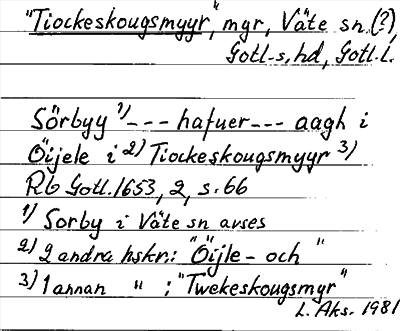 "Tiockeskougsmyyr", myr, Väte sn (?),
Gotl. s. hd, Gotl. l.
Sörbyy 1)--- hafuer --- aagh i
Öijele i 2) Tiockeskougsmyyr 3)
Rb Gotl. 1653, 2, s. 66
1) Sorby i Väte sn avses
2) 2 andra hskr.: "Öijle- och "
3) 1 annan " : "Twekeskougsmyr"
L. Aks. 1981